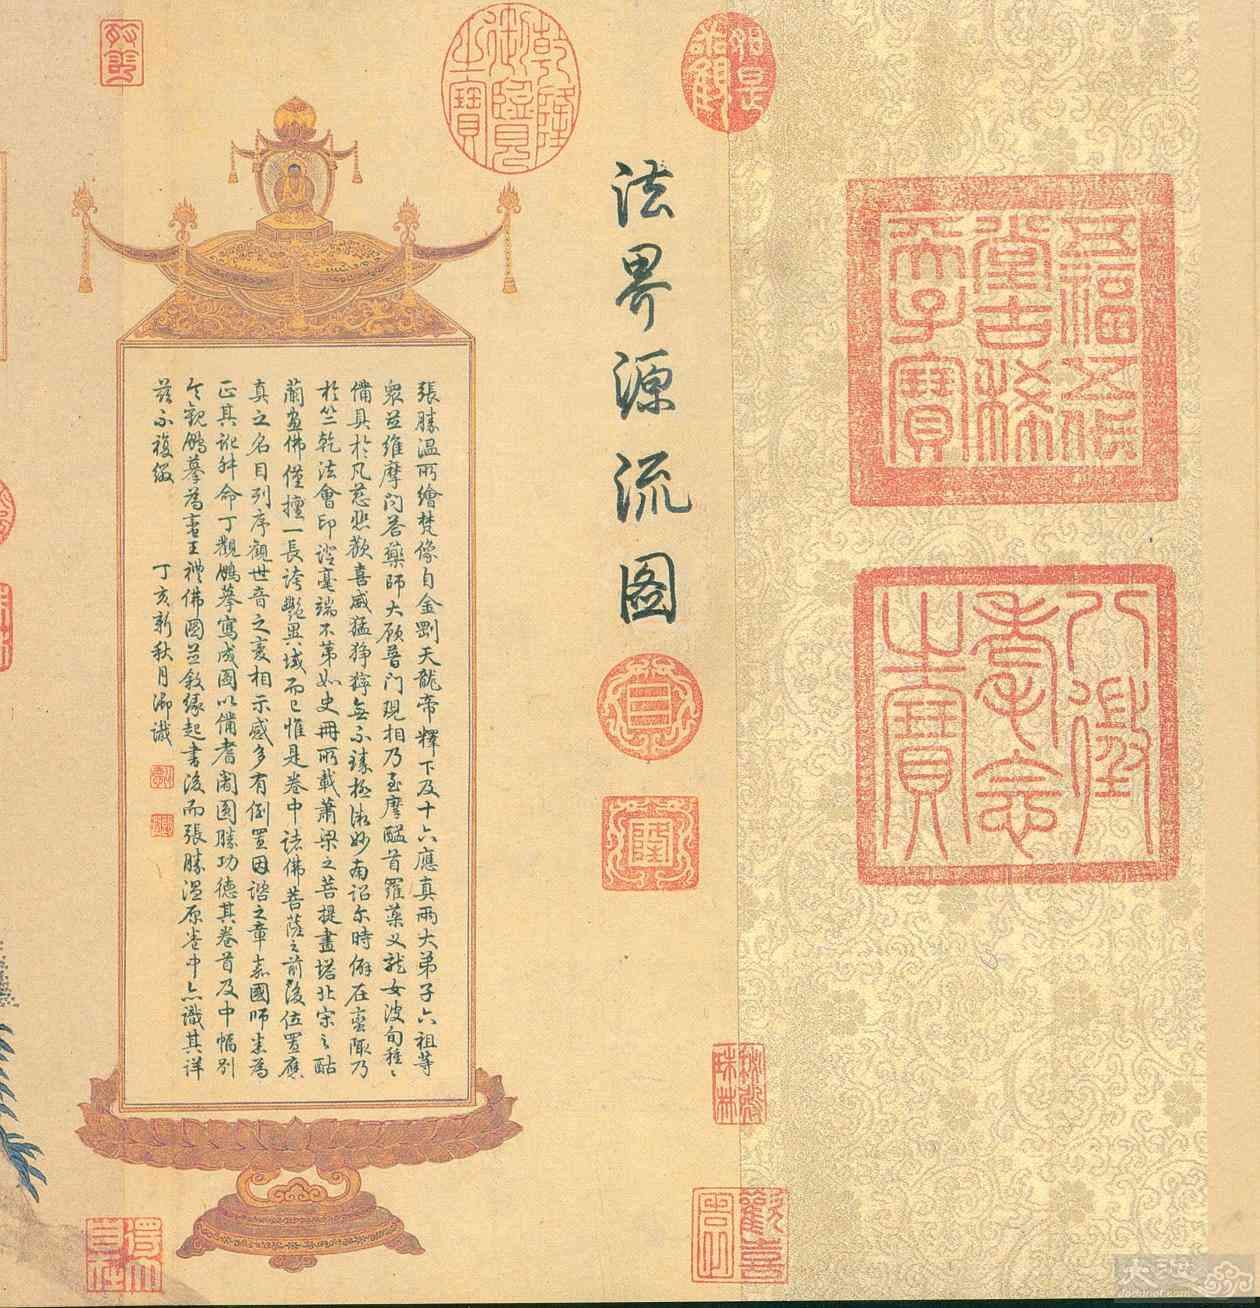 五福五代
堂古稀
天子寶
八徵
耄念
之寶
如是
我聞
乾隆
御覽
之寶
法界源流圖
乾
隆
秘殿
珠林
張勝温所繪梵像自金剛天龍帝釋下及十六應真兩大弟子六祖等
衆並維摩問荅藥師大願普門現相乃至摩醯首羅藥义龍女波旬種〻
備具於凡慈悲歡喜威猛猙獰無不臻極微妙南詔尔時僻在蛮陬乃
於竺乾法會印證毫端不第如史冊所載蕭梁之菩提畫塔北宋之酤
蘭畫佛僅擅一長誇艷異域而已惟是卷中諸佛菩薩之前後位置應
真之名目列序觀世音之変相示感多有倒置因諮之章嘉國師悉為
正其訛舛命丁觀鵬摹寫成圖以備耆闍圓勝功德其卷首及中幅別
令觀鵬摹為蛮王禮佛圖並敘緣起書後而張勝温原卷中亦識其詳
茲不複綴 丁亥新秋月御識
得大
自在